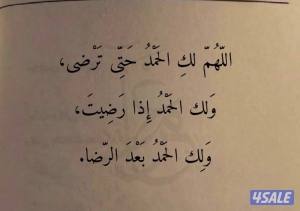 اللّهُمّ لكِ الحَمْدُ حَتِّى تَرْضى،
وَلك الحَمْدُ إذا رَضِيتَ،
وَلِكِ الحَمْدُ بَعْدَ الرّضا.
4SALE